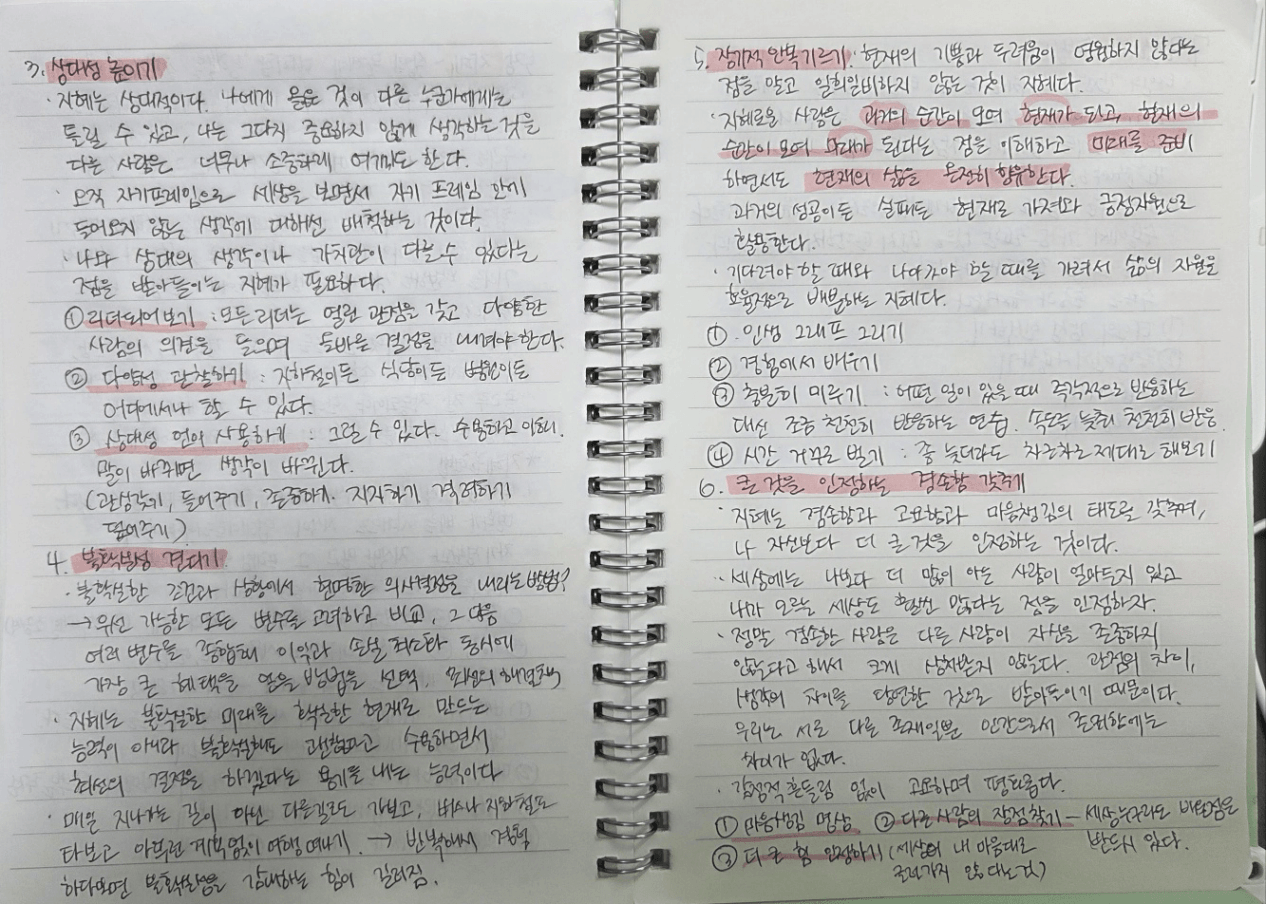 3. 상대성 높이기
· 지혜는 상대적이다. 나에게 옳은 것이 다른 누군가에게는
틀릴 수 있고, 나는 그다지 중요하지 않게 생각하는 것을
다른 사람은 너무나 소중하게 여기기도 한다.
· 오직 자기프레임으로 세상을 보면서 자기 프레임 안에
들어오지 않는 생각에 대해선 배척하는 것이다.
· 나와 상대의 생각이나 가치관이 다를 수 있다는
점을 받아들이는 지혜가 필요하다.
① 리더되어보기 : 모든 리더는 열린 관점을 갖고 다양한
사람의 의견을 들으며 올바른 결정을 내려야 한다.
② 다양성 관찰하기 : 지하철이든 식당이든 병원이든
어디에서나 할 수 있다.
③ 상대성 언어 사용하기 : 그럴 수 있다. 수용하고 이해.
말이 바뀌면 생각이 바뀐다.
(관심갖기, 들어주기, 존중하기, 지지하기 격려하기
덮어주기)
4. 불확실성 견디기
· 불확실한 조건과 상황에서 현명한 의사결정을 내리는 방법?
→ 우선 가능한 모든 변수를 고려하고 비교, 그 다음
여러 변수를 종합해 이익과 손실 동시에
가장 큰 혜택을 얻을 방법을 선택. 최선의 해결책
· 지혜는 불확실한 미래를 확실한 현재로 만드는
능력이 아니라 불확실해도 괜찮다고 수용하면서
최선의 결정을 하겠다는 용기를 내는 능력이다
· 매일 지나가는 길이 아닌 다른길로도 가보고, 버스나 지하철도
타보고 아무런 계획없이 여행 떠나기. → 반복해서 경험
하다보면 불확실성을 감내하는 힘이 길러짐.
5. 장기적 안목 기르기. 현재의 기쁨과 두려움이 영원하지 않다는
점을 알고 일희일비하지 않는 것이 지혜다.
· 지혜로운 사람은 과거의 순간이 모여 현재가 되고, 현재의
순간이 모여 미래가 된다는 점을 이해하고 미래를 준비
하면서도 현재의 삶을 온전히 향유한다.
과거의 성공이든 실패든 현재로 가져와 긍정자원으로
활용한다.
· 기다려야 할 때와 나아가야 할 때를 가려서 삶의 자원을
효율적으로 배분하는 지혜다.
① 인생 그래프 그리기
② 경험에서 배우기
③ 충분히 미루기 : 어떤 일이 있을 때 즉각적으로 반응하는
대신 조금 천천히 반응하는 연습. 속도를 늦춰 천천히 반응.
④ 시간 거꾸로 벌기 : 좀 늦더라도 차근차근 제대로 해보기
6. 큰 것을 인정하는 겸손함 갖추기
· 지혜는 겸손함과 고요함과 마음챙김의 태도를 갖추며,
나 자신보다 더 큰 것을 인정하는 것이다.
· 세상에는 나보다 더 많이 아는 사람이 얼마든지 있고
내가 모르는 세상도 훨씬 많다는 점을 인정하자.
· 정말 겸손한 사람은 다른 사람이 자신을 존중하지
않는다고 해서 크게 상처받지 않는다. 관점의 차이,
생각의 차이를 당연한 것으로 받아들이기 때문이다.
우리는 서로 다른 존재일뿐 인간으로서 존귀함에는
차이가 없다.
· 감정적 흔들림 없이 고요하며 평화롭다.
① 마음챙김 명상 ② 다른 사람의 장점 찾기 - 세상누구라도 배울점은
반드시 있다.
③ 더 큰 힘 인정하기 (세상이 내 마음대로
돌아가지 않는다는것)